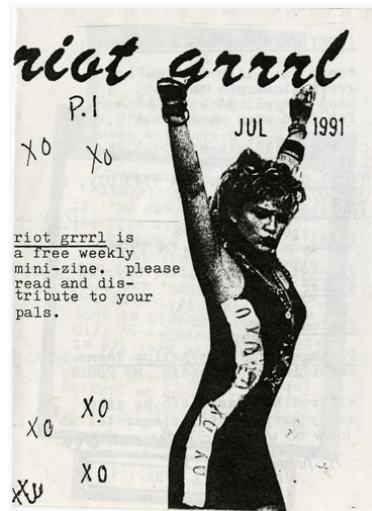 riot grrrl
P.1
JUL 1991
XO
XO
riot grrrl is
a free weekly
mini-zine. please
read and dis-
tribute to your
pals.
XO
XO
XO
XO
XO
XO